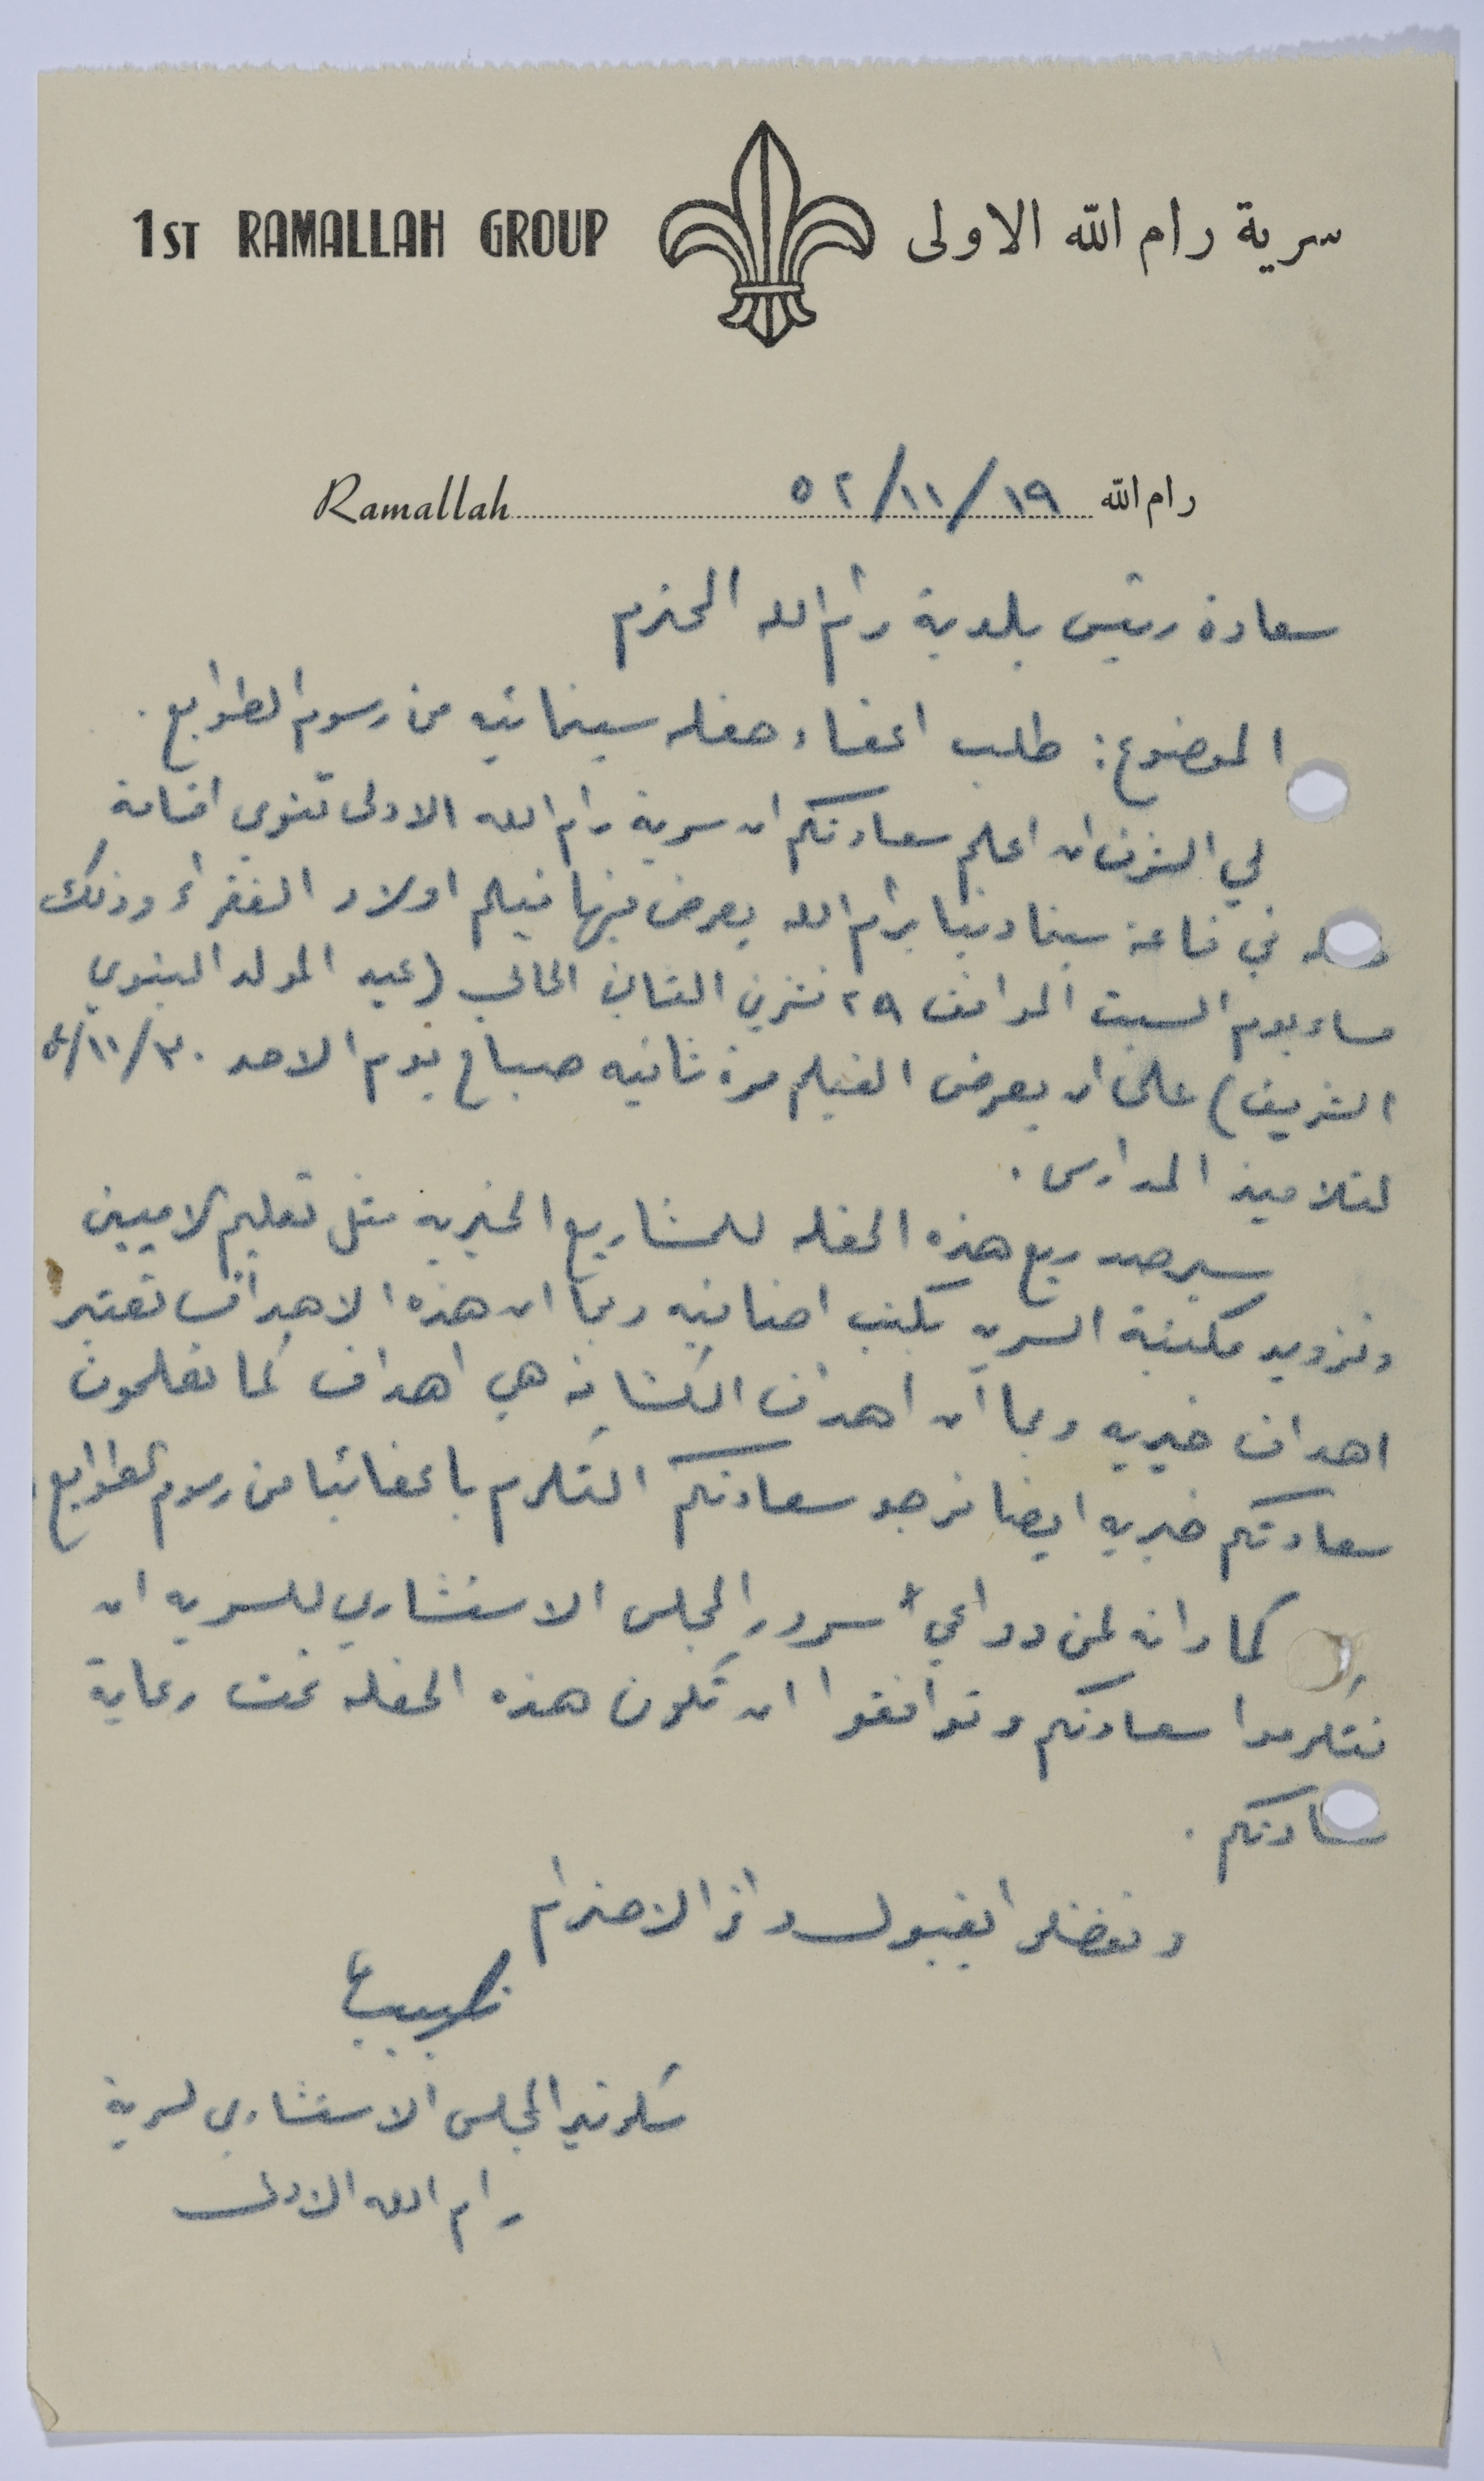 1ST RAMALLAH GROUP سرية رام الله الاولى
Ramallah ٥٢/١١/١٩ رام الله
سعادة رئيس بلدية رام الله المحترم
الموضوع: طلب اعفاء حفله سينمائيه من رسوم الطوابع.
لي الشرف ان اعلم سعادتكم ان سرية رام الله الاولى تنوي اقامة
حفله في قاعة سينما دنيا برام الله يعرض فيها فيلم اولاد الفقراء وذلك
مساء يوم السبت الموافق ٢٩ تشرين الثاني الحالي (عيد المولد النبوي
الشريف) على ان يعرض الفيلم مرة ثانيه صباح يوم الاحد ٣٠/١١/
لتلاميذ المدارس.
سيرصد ريع هذه الحفله للمشاريع الخيريه مثل تعليم الاميين
وتزويد مكتبة السريه بكتب اضافيه وبما ان هذه الاهداف تعتبر
اهداف خيريه وبما ان اهداف الكشافه هي اهداف كما تعلمون
سعادتكم خيريه ايضا نرجو سعادتكم التكرم باعفائنا من رسوم الطوابع.
كما وانه لمن دواعي سرور المجلس الاستشاري للسريه ان
تتكرموا سعادتكم وتوافقوا ان تكون هذه الحفله تحت رعاية
سعادتكم.
وتفضلوا بقبول وافر الاحترام
سكرتير المجلس الاستشاري لسرية
رام الله الاولى